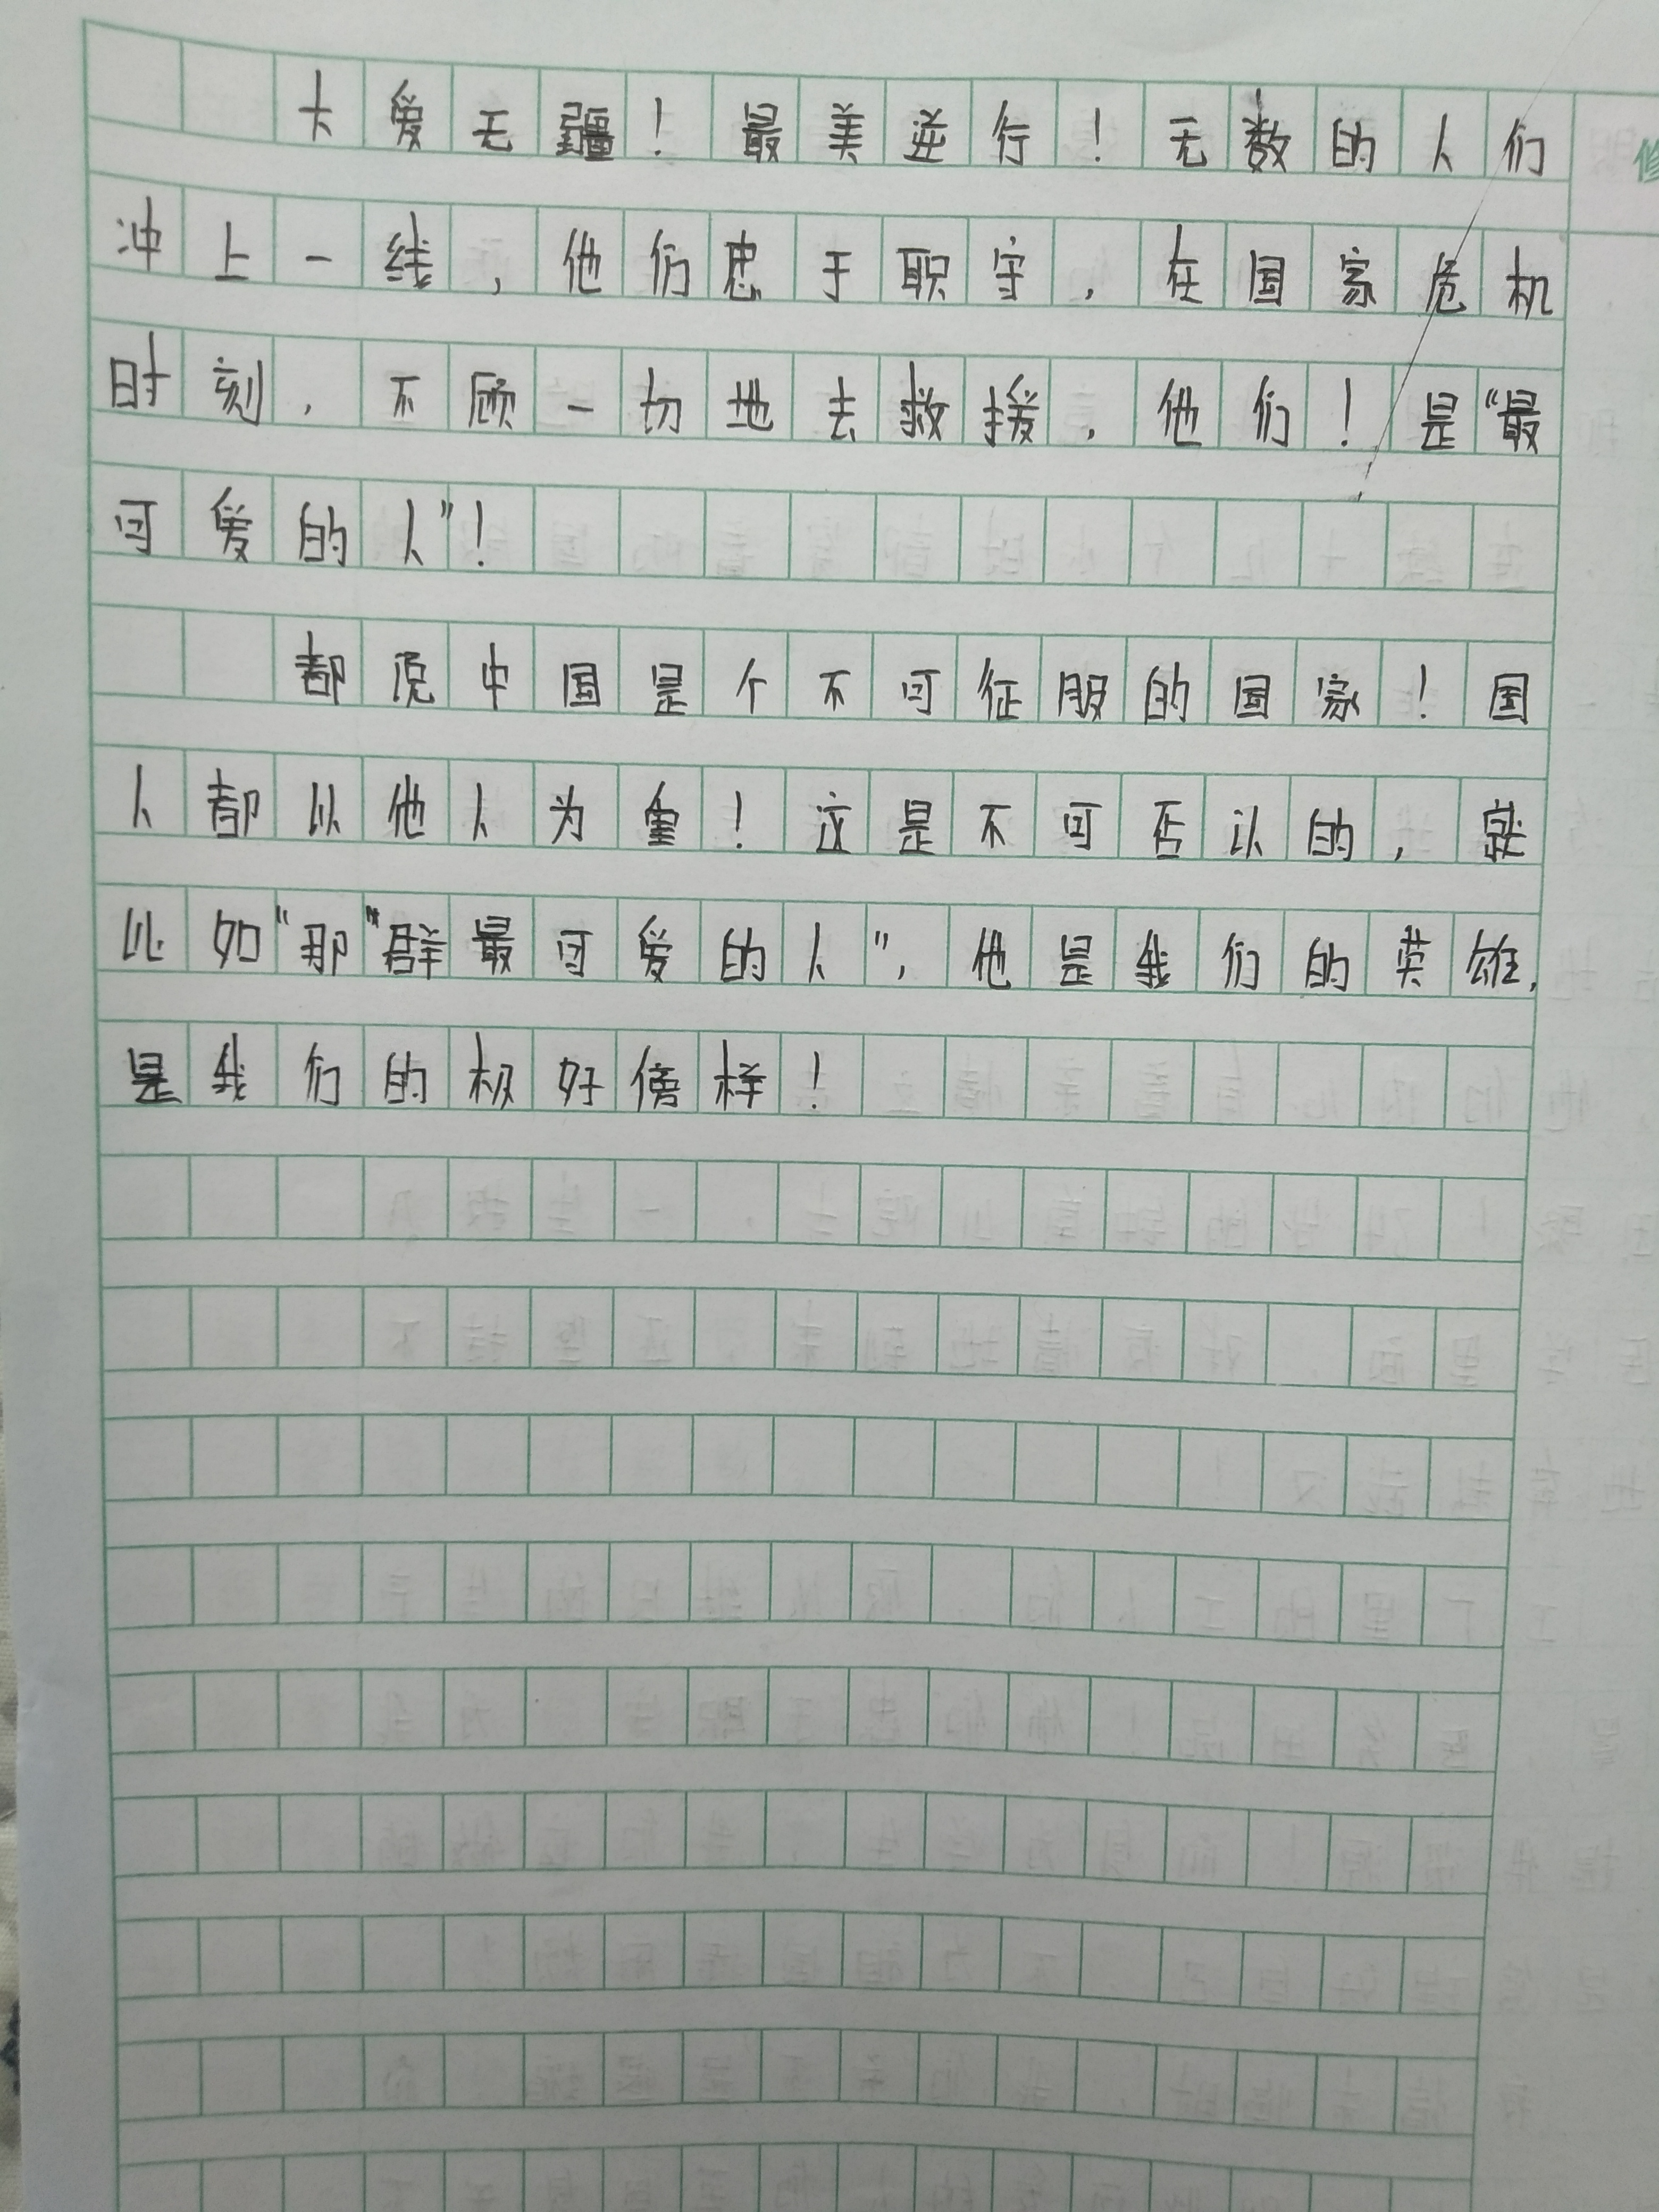 大爱无疆！最美逆行！无数的人们
冲上一线，他们忠于职守，在国家危机
时刻，不顾一切地去救援，他们！是“最
可爱的人”！
都说中国是个不可征服的国家！国
人都以他人为重！这是不可否认的，就
比如“那“群最可爱的人”，他是我们的英雄，
是我们的极好傍样！
修